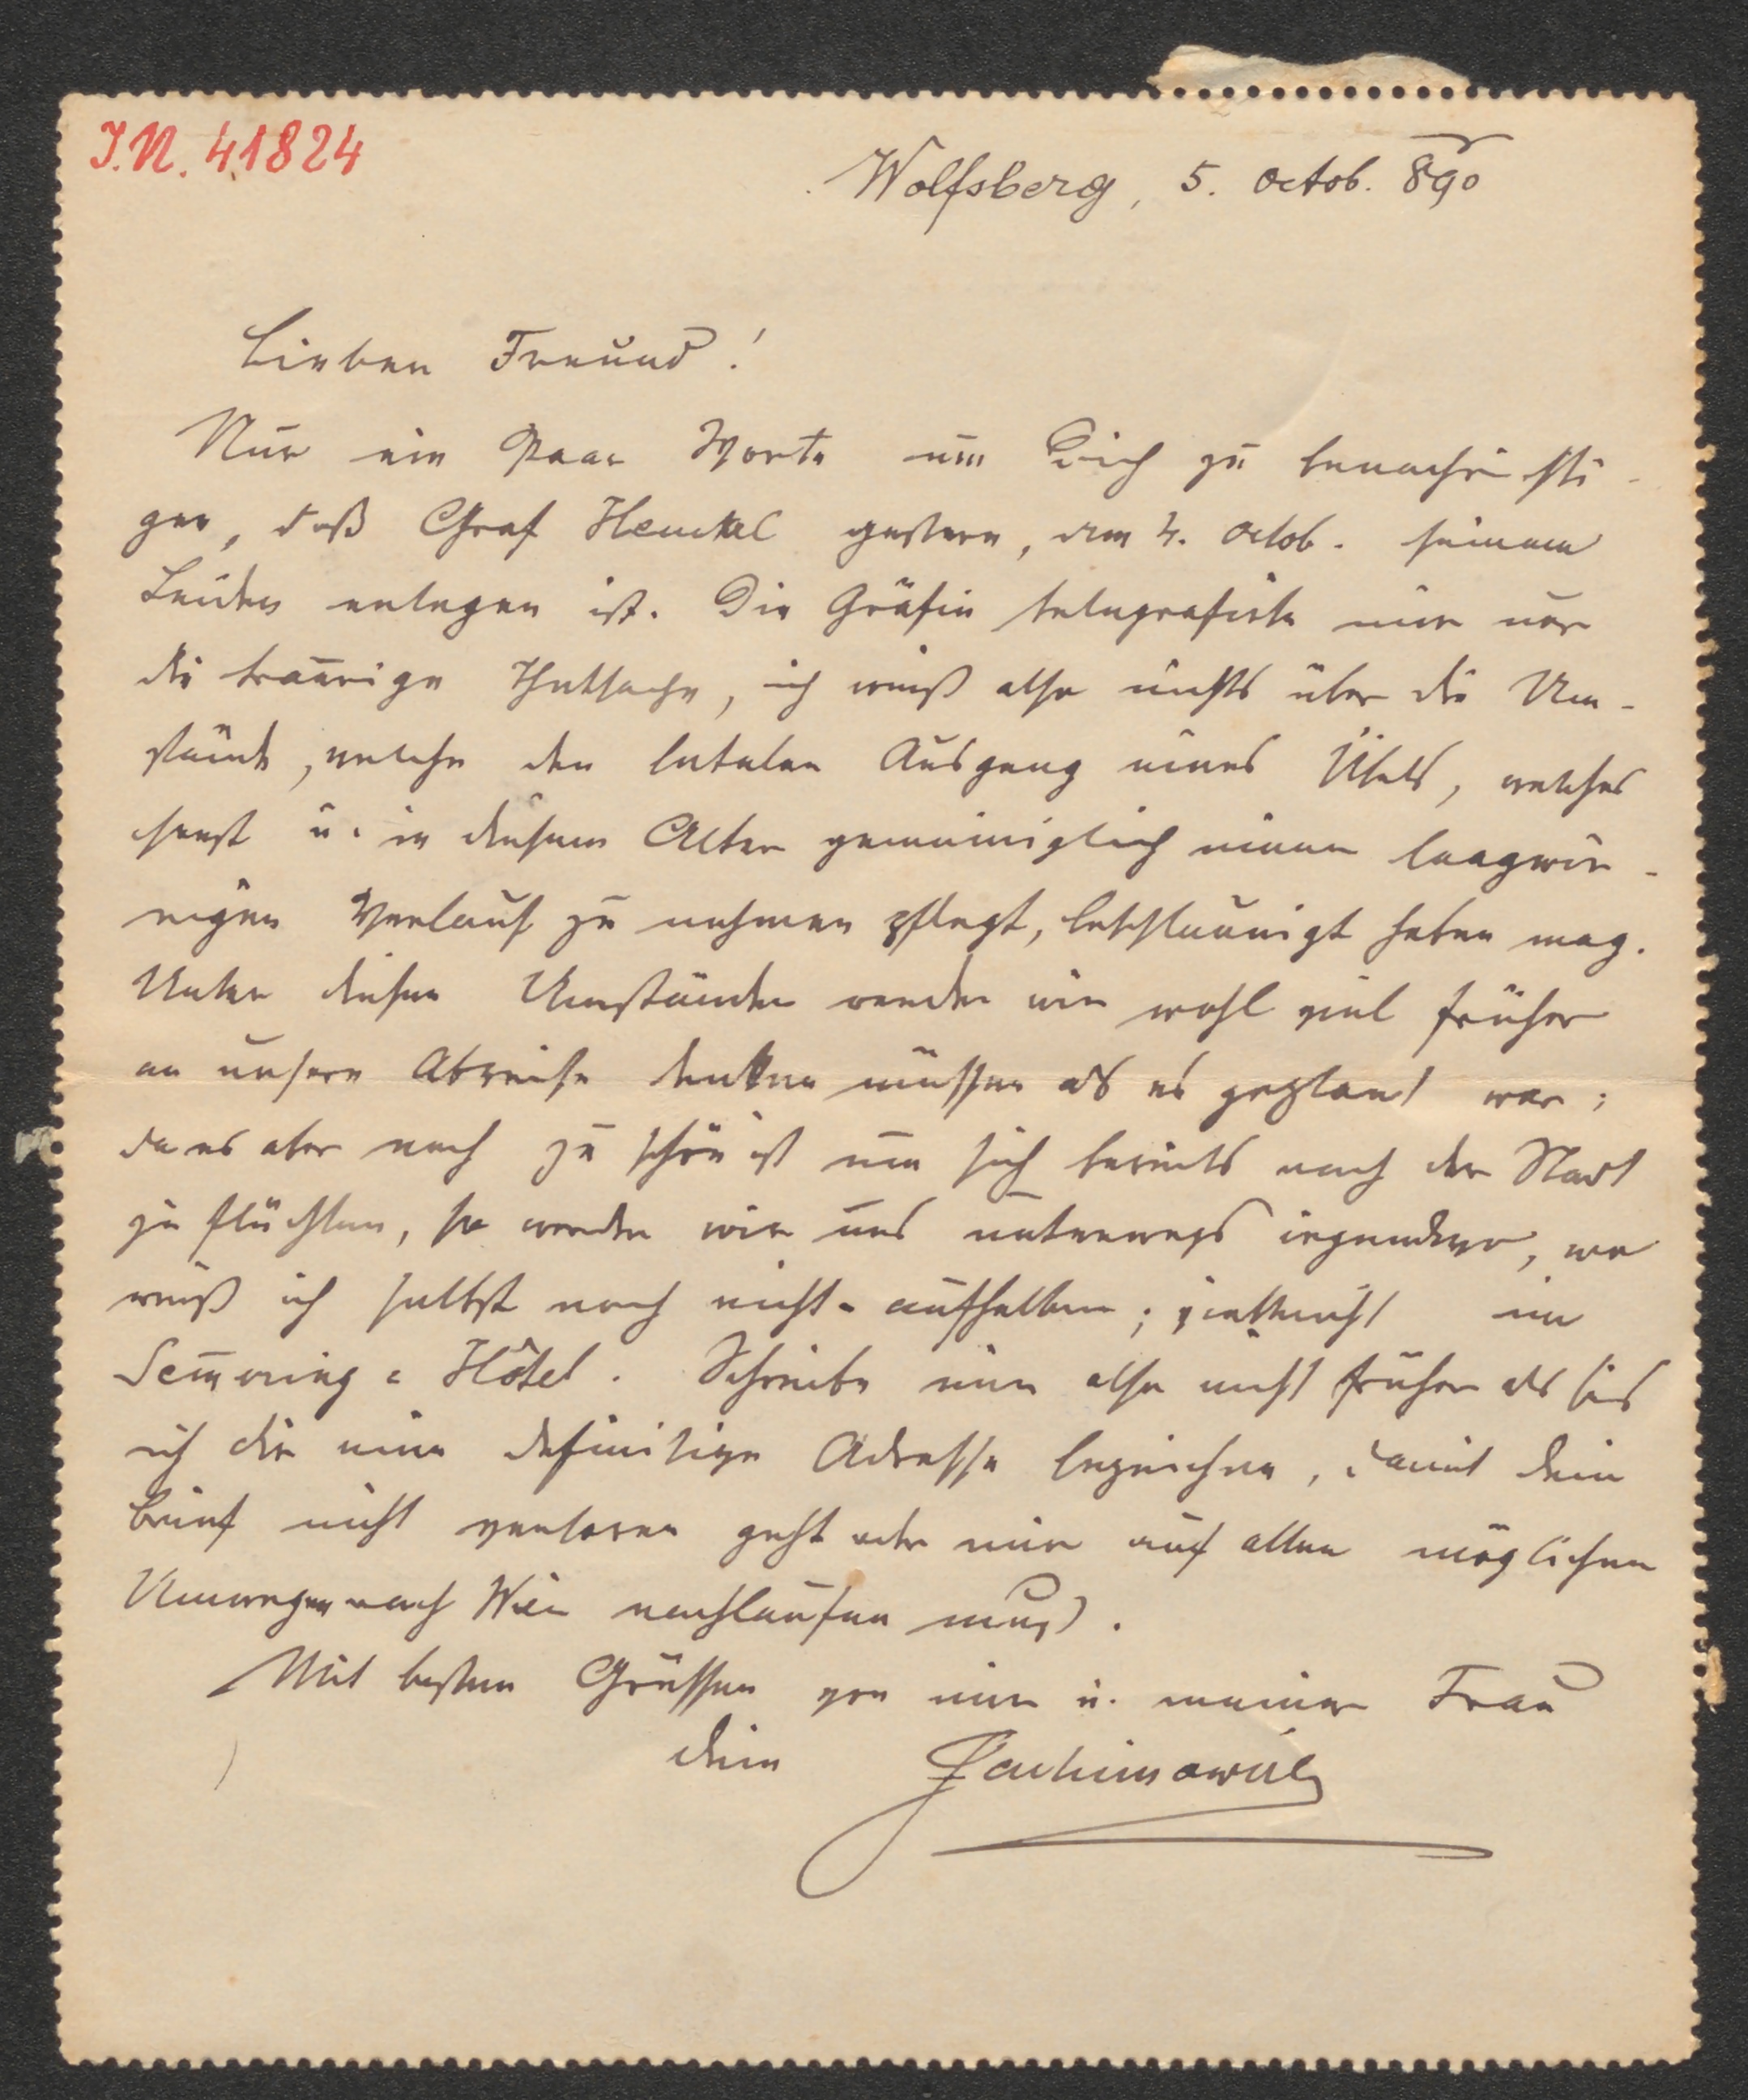 I.N. 41824
Wolfsberg, 5. octob. 890
Lieber Freund!
Nur ein Paar Worte um Dich zu benachrichti-
gen, daß Graf Henckel gestern, den 4. octob. seinem
Leiden erlegen ist. Die Gräfin telegrafirte mir nur
die traurige Thatsache, ich weiß also nichts über die Um-
stände, welche den letalen Ausgang eines Übels, welches
sonst u. in diesem Alter gemeiniglich einen langwie-
rigen Verlauf zu nehmen pflegt, beschleunigt haben mag.
Unter diesen Umständen werden wir wohl viel früher
an unsere Abreise denken müssen als es geplant war;
da es aber noch zu schön ist um sich bereits nach der Stadt
zu flüchten, so werden wir uns unterwegs irgendwo, wo
weiß ich selbst noch nicht - aufhalten; vielleicht im
Semmering-Hôtel. Schreibe mir also nicht früher als bis
ich dir eine definitive Adresse bezeichne, damit dein
Brief nicht verloren geht oder mir auf allen möglichen
Umwegen nach Wien nachlaufen muß.
Mit besten Grüssen von mir u. meiner Frau
dein